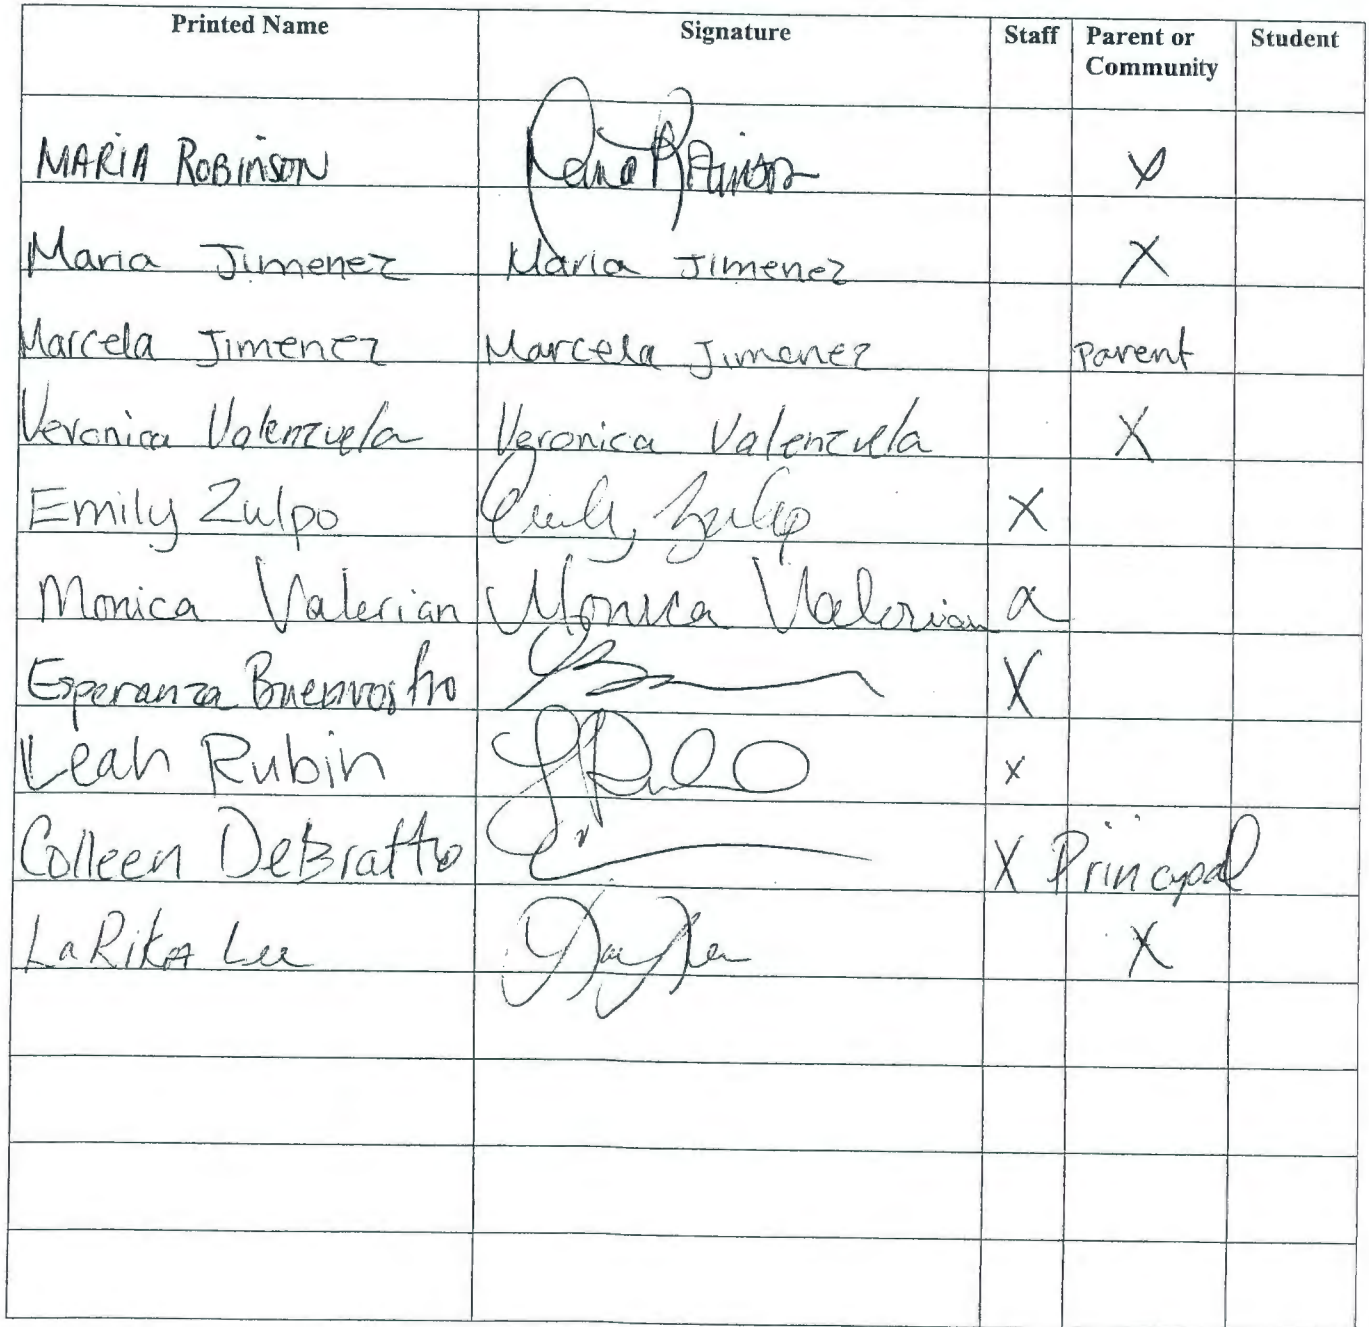 Printed Name Signature Staff Parent or Community Student
MARIA ROBINSON X
Maria Jimenez Maria Jimenez X
Marcela Jimenez Marcela Jimenez parent
Veronica Valenzuela Veronica Valenzuela X
Emily Zulpo Emily Zulpo X
Monica Valerian Monica Valerian X
Esperanza X
Leah Rubin X
Colleen DeBratto X Principal
LaRika Lee X